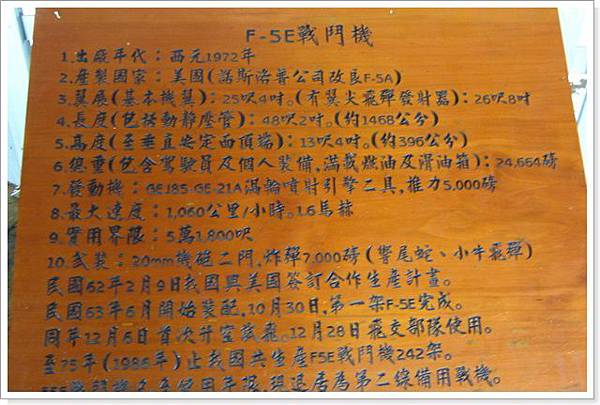 F-5E戰鬥機
1.出廠年代：西元1972年
2.產製國家：美國(諾斯洛普公司改良F-5A)
3.翼展(基本機翼)：25呎4吋。(有翼尖飛彈發射器)：26呎8吋
4.長度(包括動靜壓管)：48呎2吋。(約1468公分)
5.高度(至垂直安定面頂端)：13呎4吋。(約396公分)
6.總重(包含駕駛員及個人裝備,滿載燃油及滑油箱)：24,664磅
7.發動機：GEJ85/GE-21A渦輪噴射引擎二具,推力5,000磅
8.最大速度：1,060公里/小時。1.6馬赫
9.實用界限：5萬1,800呎
10.武裝：20mm機砲二門,炸彈7,000磅(響尾蛇、小牛飛彈)
民國62年2月9日我國與美國簽訂合作生產計畫。
民國63年6月開始裝配,10月30日,第一架F-5E完成。
同年12月6日首次升空試飛。12月28日飛交部隊使用。
至75年(1986年)止我國共生產F5E戰鬥機242架。
使用年限,現退居為第二線備用戰機。